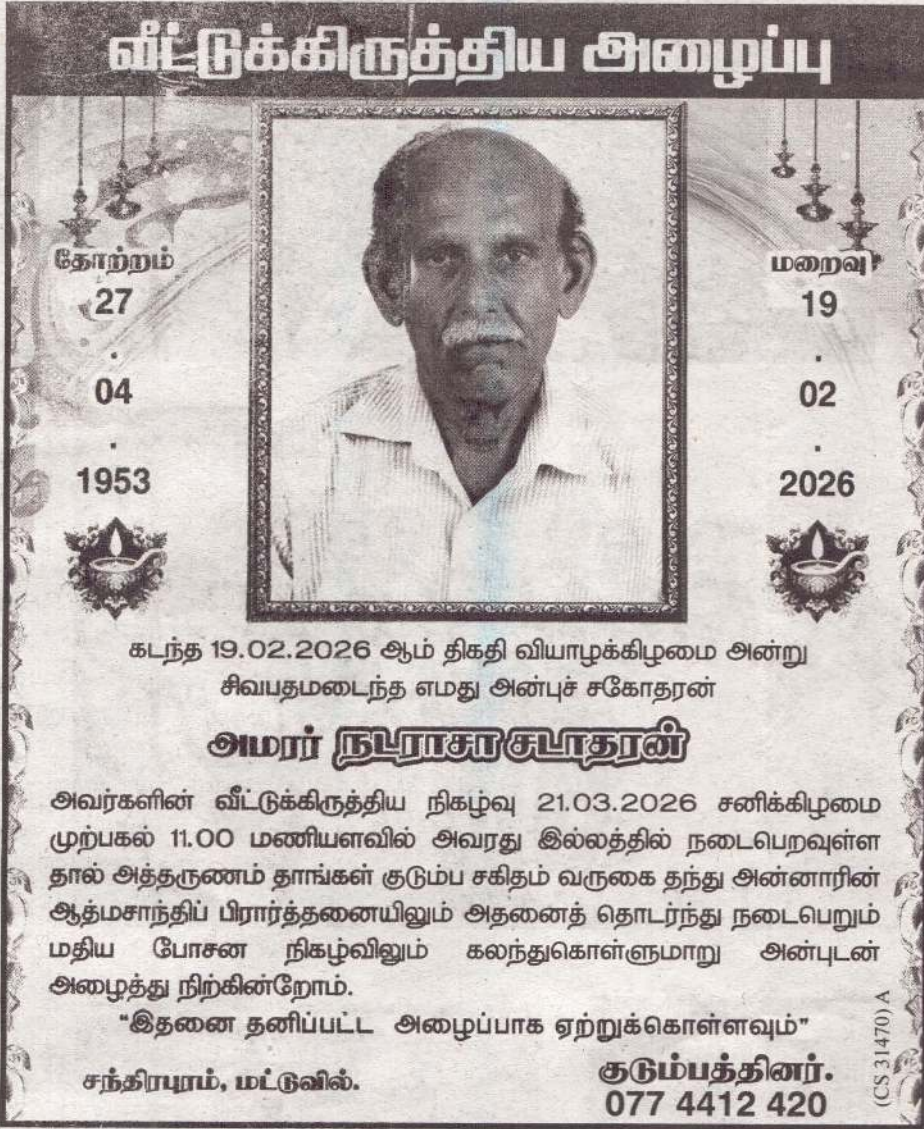 வீட்டுக்கிருத்திய அழைப்பு
தோற்றம்
27
.
04
.
1953
மறைவு
19
.
02
.
2026
கடந்த 19.02.2026 ஆம் திகதி வியாழக்கிழமை அன்று
சிவபதமடைந்த எமது அன்புச் சகோதரன்
அமரர் நடராசா சடாதரன்
அவர்களின் வீட்டுக்கிருத்திய நிகழ்வு 21.03.2026 சனிக்கிழமை
முற்பகல் 11.00 மணியளவில் அவரது இல்லத்தில் நடைபெறவுள்ள
தால் அத்தருணம் தாங்கள் குடும்ப சகிதம் வருகை தந்து அன்னாரின்
ஆத்மசாந்திப் பிரார்த்தனையிலும் அதனைத் தொடர்ந்து நடைபெறும்
மதிய போசன நிகழ்விலும் கலந்துகொள்ளுமாறு அன்புடன்
அழைத்து நிற்கின்றோம்.
"இதனை தனிப்பட்ட அழைப்பாக ஏற்றுக்கொள்ளவும்"
சந்திரபுரம், மட்டுவில்.
குடும்பத்தினர்.
077 4412 420
(CS 31470) A